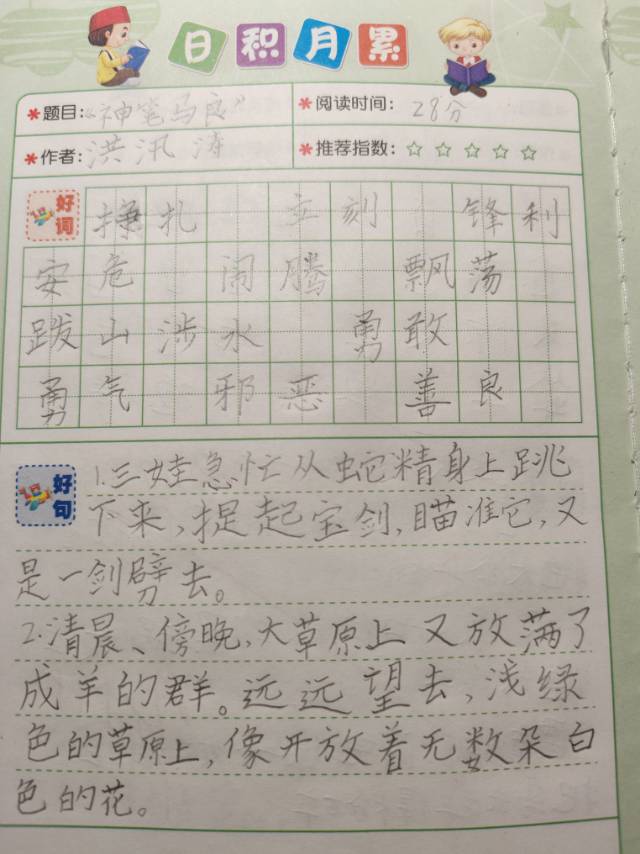 日积月累
*题目:“神笔马良” *阅读时间: 28分
*作者:洪汛涛 *推荐指数:☆☆☆☆☆
好词 挣扎 立刻 锋利
安危 闹腾 飘荡
跋山涉水 勇敢
勇气 邪恶 善良
好句 1.三娃急忙从蛇精身上跳
下来,提起宝剑,瞄准它,又
是一剑劈去。
2.清晨、傍晚,大草原上又放满了
成羊的群。远远望去,浅绿
色的草原上,像开放着无数朵白
色的花。